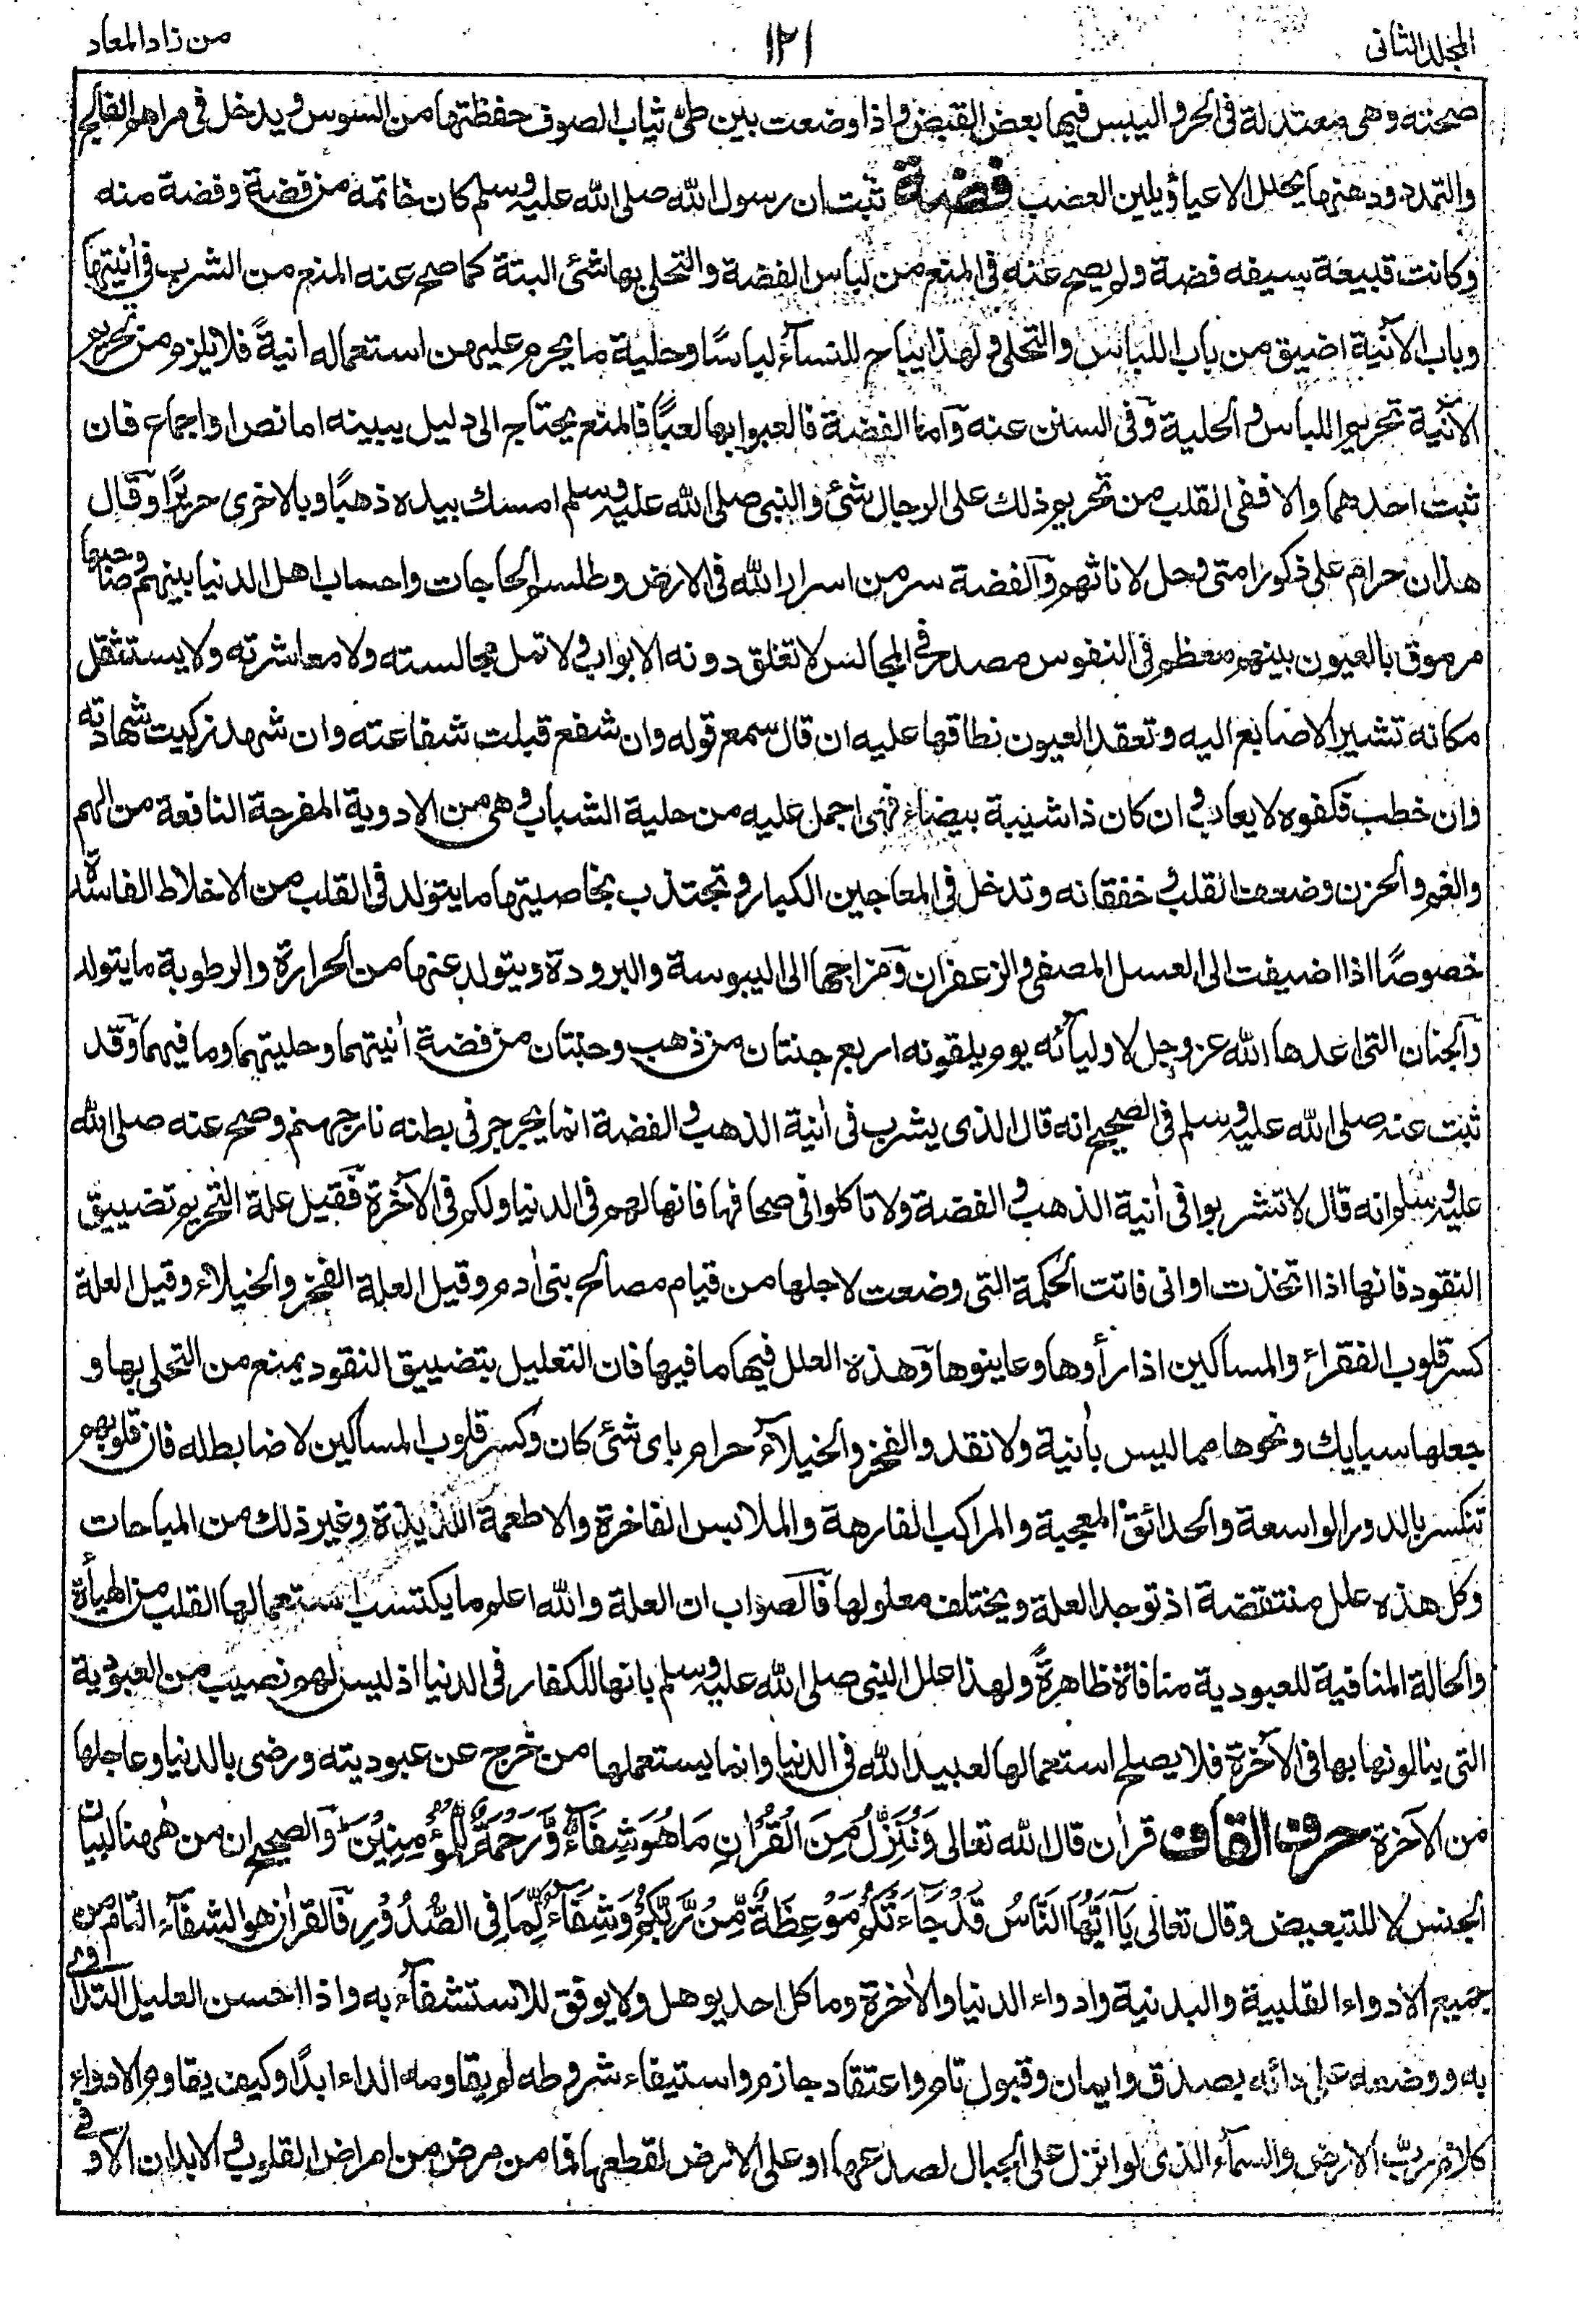 المجلد الثانی
١٢١
من زاد المعاد
صحته وهی معتدلة فی الحر والیبس فیها بعض القبض واذا وضعت بین طی ثیاب الصوف حفظتها من السوس ویدخل فی مراهم الفالج
والتمدد ودهنها یحلل الاعیا ویلین العصب فضة ثبت ان رسول الله صلی الله علیه وسلم کان خاتمه من فضة وفضة منه
وکانت قبیعة سیفه فضة ولم یصح عنه فی المنع من لباس الفضة والتحلی بها شئ البتة کما صح عنه المنع من الشرب فی اٰنیتها
وباب الآنیة اضیق من باب اللباس والتحلی ولهذا یباح للنسآء لباسًا وحلیة ما یحرم علیهن استعماله اٰنیةً فلا یلزم من تحریم
الآنیة تحریم اللباس والحلیة وفی السنن عنه وآما الفضة فالعبوا بها لعبًا فالمنع یحتاج الی دلیل یبینه اما نص او اجماع فان
ثبت احدهما والا ففی القلب من تحریم ذلك علی الرجال شئ والنبی صلی الله علیه وسلم امسك بیده ذهبًا وبالاخری حریرًا وقال
هذان حرام علی ذکور امتی وحل لاناثهم وآلفضة سر من اسرار الله فی الارض وطلسم الحاجات واحساب اهل الدنیا بینهم وصاحبها
مرموق بالعیون بینهم معظم فی النفوس مصدر فی المجالس لا تغلق دونه الابواب ولا تمل مجالسته ولا معاشرته ولا یستثقل
مکانه تشیر الاصابع الیه وتعقد العیون نطاقها علیه ان قال سمع قوله وان شفع قبلت شفاعته وان شهد زکیت شهادته
وان خطب فکفوه لا یعاب وان کان ذا شیبة بیضاء فهی اجمل علیه من حلیة الشباب وهی من الادویة المفرحة النافعة من الهم
والغم والحزن وضعف القلب وخفقانه وتدخل فی المعاجین الکبار وتجتذب بخاصیتها ما یتولد فی القلب من الاخلاط الفاسدة
خصوصًا اذا اضیفت الی العسل المصفی والزعفران ومزاجها الی الیبوسة والبرودة ویتولد عنها من الحرارة والرطوبة ما یتولد
وآلجنان التی اعدها الله عز وجل لاولیآئه یوم یلقونه اربع جنتان من ذهب وجنتان من فضة اٰنیتهما وحلیتهما وما فیهما وقد
ثبت عنه صلی الله علیه وسلم فی الصحیح انه قال الذی یشرب فی اٰنیة الذهب والفضة انما یجرجر فی بطنه نار جهنم وصح عنه صلی الله
علیه وسلم انه قال لا تشربوا فی اٰنیة الذهب والفضة ولا تاکلوا فی صحافها فانها لهم فی الدنیا ولکم فی الآخرة فقیل علة التحریم تضییق
النقود فانها اذا اتخذت اوانی فاتت الحکمة التی وضعت لاجلها من قیام مصالح بنی اٰدم وقیل العلة الفخر والخیلاء وقیل العلة
کسر قلوب الفقراء والمساکین اذا رأوها وعاینوها وهذه العلل فیها ما فیها فان التعلیل بتضییق النقود یمنع من التحلی بها و
جعلها سبایك ونحوها مما لیس باٰنیة ولا نقد والفخر والخیلآء حرام بای شئ کان وکسر قلوب المساکین لا ضابط له فان قلوبهم
تنکسر بالدور الواسعة والحدائق المعجبة والمراکب الفارهة والملابس الفاخرة والاطعمة اللذیذة وغیر ذلك من المباحات
وکل هذه علل منتقضة اذ توجد العلة ویختلف معلولها فآلصواب ان العلة والله اعلم ما یکتسب استعمالها القلب من الهیأة
والحالة المنافیة للعبودیة منافاة ظاهرةً ولهذا علل النبی صلی الله علیه وسلم بانها للکفار فی الدنیا اذ لیس لهم نصیب من العبودیة
التی ینالونها بها فی الآخرة فلا یصلح استعمالها لعبید الله فی الدنیا وانما یستعملها من خرج عن عبودیته ورضی بالدنیا وعاجلها
من الآخرة حرف القاف قراٰن قال الله تعالی وَنُنَزِّلُ مِنَ الْقُرْاٰنِ مَا هُوَ شِفَآءٌ وَّرَحْمَةٌ لِّلْمُؤْمِنِیْنَ وآلصحیح ان من هٰهنا لبیان
الجنس لا للتبعیض وقال تعالی یَآ اَیُّهَا النَّاسُ قَدْ جَآءَتْکُمْ مَوْعِظَةٌ مِّنْ رَّبِّکُمْ وَشِفَآءٌ لِّمَا فِی الصُّدُوْرِ فآلقراٰن هو الشفآء التام من
جمیع الادواء القلبیة والبدنیة وادواء الدنیا والاٰخرة وما کل احد یوهل ولا یوفق للاستشفآء به واذا احسن العلیل التداوی
به ووضعه علی دآئه بصدق وایمان وقبول تام واعتقاد جازم واستیفاء شروطه لم یقاومه الداء ابدًا وکیف یقاوم الادواء
کلام رب الارض والسمآء الذی لو انزل علی الجبال لصدعها او علی الارض لقطعها فما من مرض من امراض القلوب والابدان الا وفی